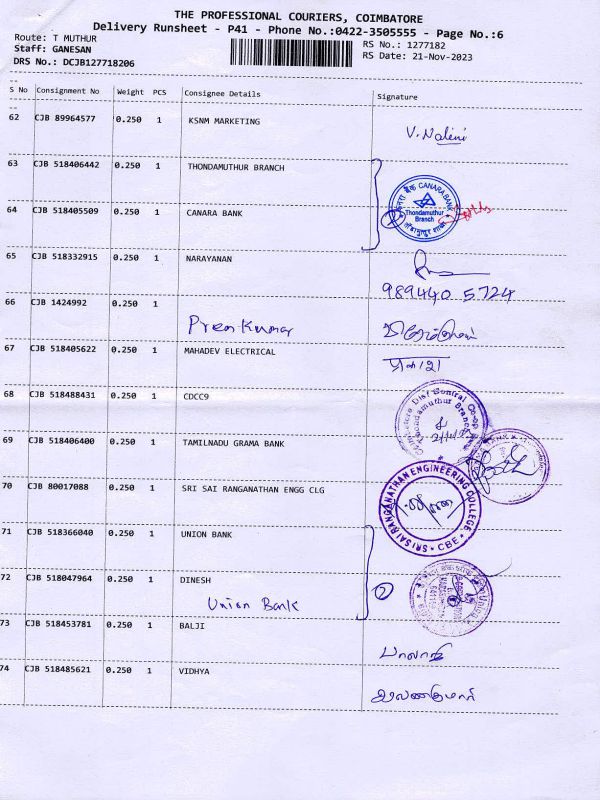 THE PROFESSIONAL COURIERS, COIMBATORE
Delivery Runsheet - P41 - Phone No.:0422-3505555 - Page No.:6
Route: T MUTHUR
Staff: GANESAN
DRS No.: DCJB127718206
RS No.: 1277182
RS Date: 21-Nov-2023
S No Consignment No Weight PCS Consignee Details Signature
62 CJB 89964577 0.250 1 KSNM MARKETING V. Nalini
63 CJB 518406442 0.250 1 THONDAMUTHUR BRANCH
64 CJB 518405509 0.250 1 CANARA BANK
CANARA BANK
Thondamuthur
Branch
65 CJB 518332915 0.250 1 NARAYANAN
989440 5724
66 CJB 1424992 0.250 1
Prem Kumar
67 CJB 518405622 0.250 1 MAHADEV ELECTRICAL
68 CJB 518488431 0.250 1 CDCC9
69 CJB 518406400 0.250 1 TAMILNADU GRAMA BANK
70 CJB 80017088 0.250 1 SRI SAI RANGANATHAN ENGG CLG
SRI SAI RANGANATHAN ENGINEERING COLLEGE
CBE
71 CJB 518366040 0.250 1 UNION BANK
72 CJB 518047964 0.250 1 DINESH
Union Bank
2
73 CJB 518453781 0.250 1 BALJI
பாலாஜி
74 CJB 518485621 0.250 1 VIDHYA